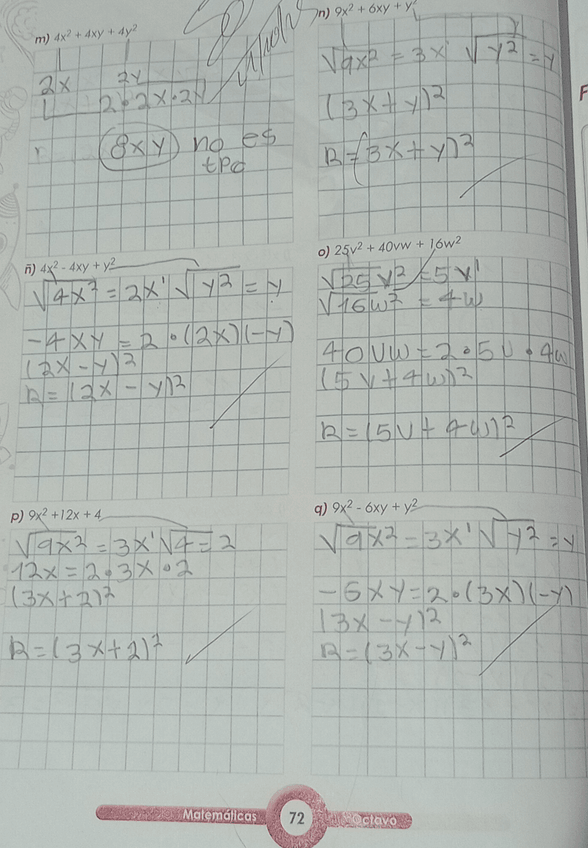 m) 4x² + 4xy + 4y²
2x 2y
2•2x•2y
8xy no es
tpc
n) 9x² + 6xy + y²
√9x² = 3x √y² = y
(3x+y)²
R=(3x+y)²
ñ) 4x² - 4xy + y²
√4x² = 2x √y² = y
-4xy = 2•(2x)(-y)
(2x-y)²
R=(2x-y)²
o) 25v² + 40vw + 16w²
√25v² = 5v
√16w² = 4w
40vw=2•5v•4w
(5v+4w)²
R=(5v+4w)²
p) 9x² +12x + 4
√9x² = 3x √4 = 2
12x=2•3x•2
(3x+2)²
R=(3x+2)²
q) 9x² - 6xy + y²
√9x² = 3x √y² = y
-6xy=2•(3x)(-y)
(3x-y)²
R=(3x-y)²
Matemáticas 72 Octavo